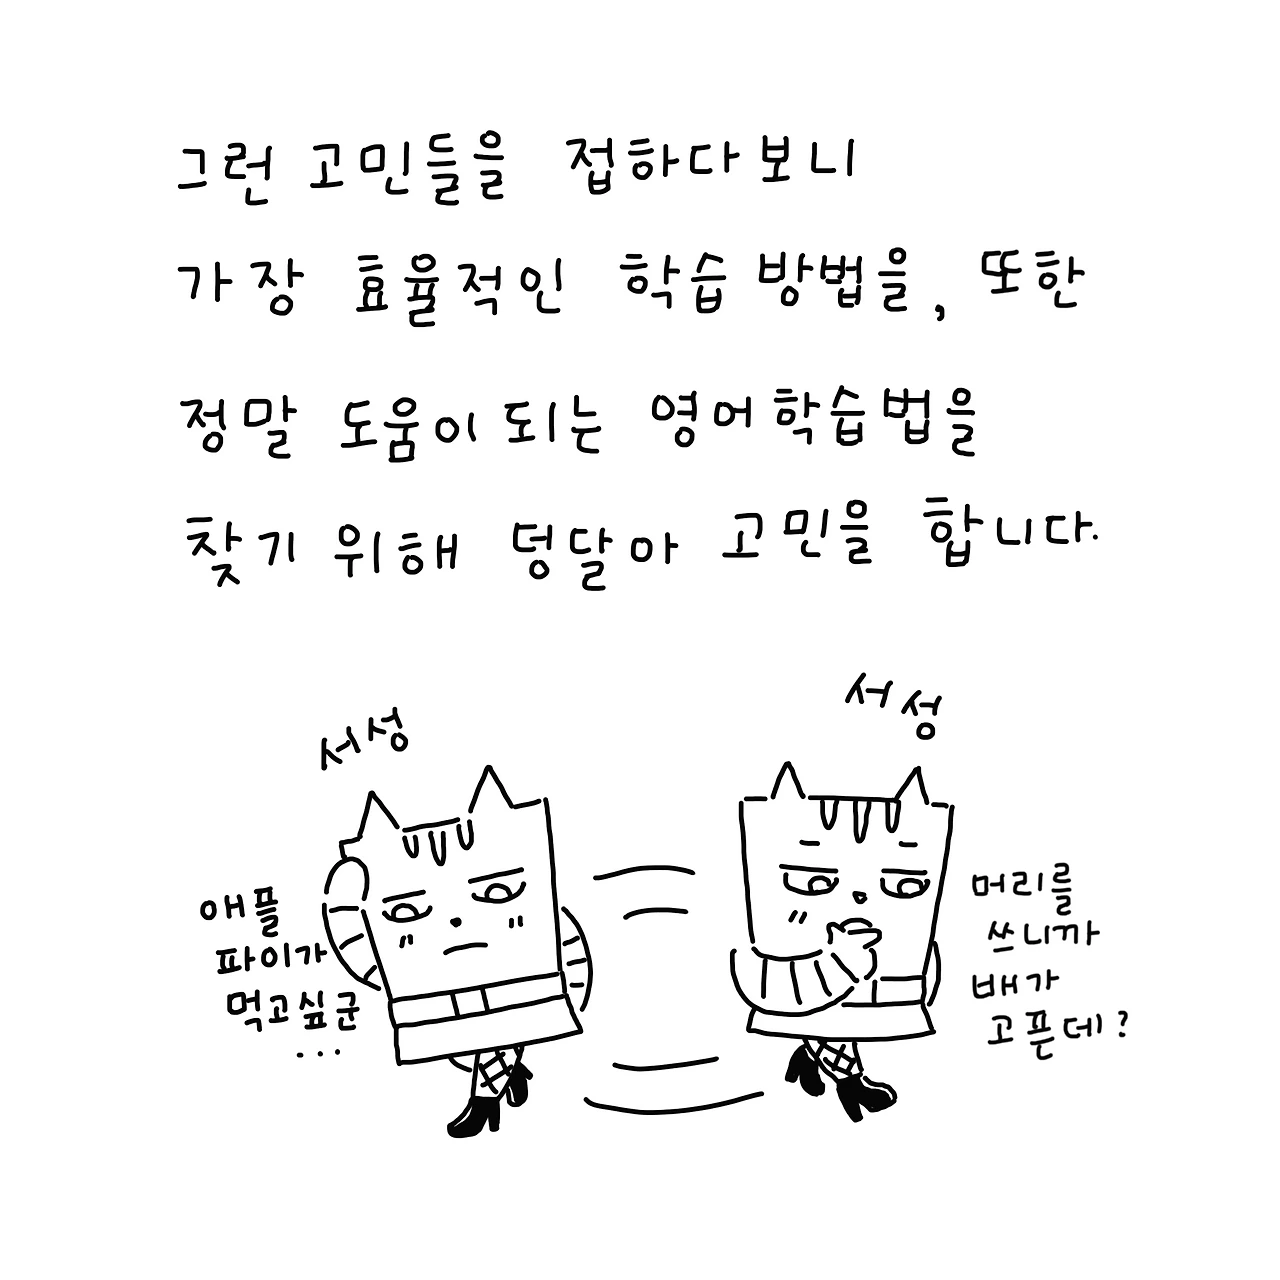 그런 고민들을 접하다보니
가장 효율적인 학습 방법을, 또한
정말 도움이 되는 영어학습법을
찾기 위해 덩달아 고민을 합니다.
서성
서성
애플
파이가
먹고싶군
...
머리를
쓰니까
배가
고픈데?